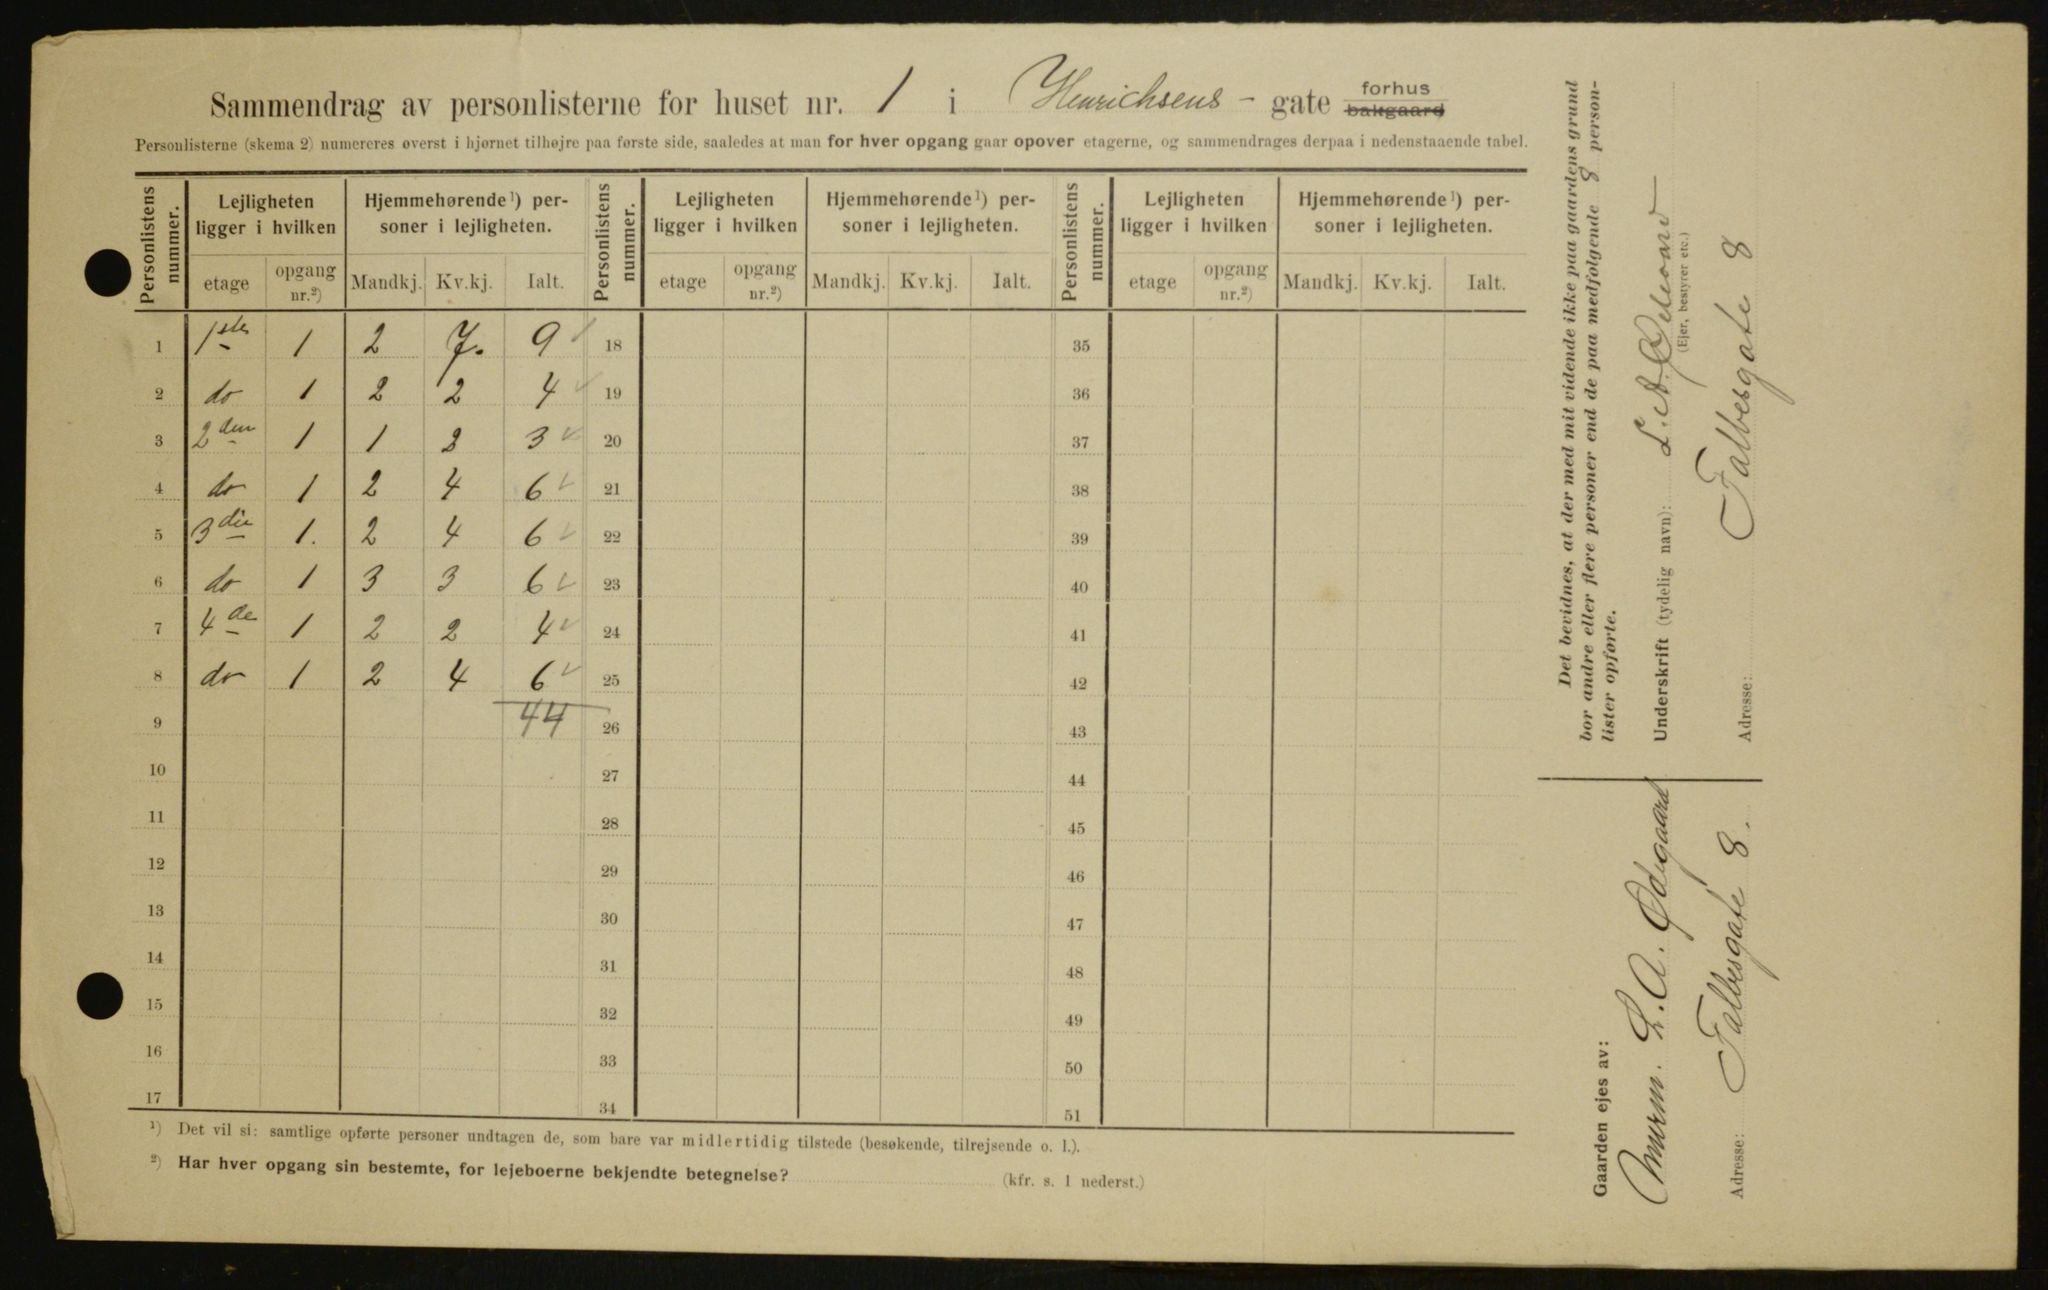 Sammendrag av personlisterne for huset nr. 1 i Henrichsens - gate forhus bakgaard
Personlisterne (skema 2) numereres øverst i hjørnet tilhøjre paa første side, saaledes at man for hver opgang gaar opover etagerne, og sammendrages derpaa i nedenstaaende tabel.
Personlistens nummer. Lejligheten ligger i hvilken Hjemmehørende ¹) personer i lejligheten. Personlistens nummer. Lejligheten ligger i hvilken Hjemmehørende ¹) personer i lejligheten. Personlistens nummer. Lejligheten ligger i hvilken Hjemmehørende ¹) personer i lejligheten.
etage opgang nr.²) Mandkj. Kv.kj. Ialt. etage opgang nr.²) Mandkj. Kv.kj. Ialt. etage opgang nr.²) Mandkj. Kv.kj. Ialt.
1 1ste 1 2 7. 9 18 35
2 do 1 2 2 4 19 36
3 2den 1 1 2 3 20 37
4 do 1 2 4 6 21 38
5 3die 1. 2 4 6 22 39
6 do 1 3 3 6 23 40
7 4de 1 2 2 4 24 41
8 do 1 2 4 6 25 42
9 44 26 43
10 27 44
11 28 45
12 29 46
13 30 47
14 31 48
15 32 49
16 33 50
17 34 51
¹) Det vil si: samtlige opførte personer undtagen de, som bare var midlertidig tilstede (besøkende, tilrejsende o. l.).
²) Har hver opgang sin bestemte, for lejeboerne bekjendte betegnelse? (kfr. s. 1 nederst.)
Det bevidnes, at der med mit vidende ikke paa gaardens grund
bor andre eller flere personer end de paa medfølgende 8 person-
lister opførte.
Underskrift (tydelig navn): L. A. Ødegaard
(Ejer, bestyrer etc.)
Adresse: Falbesgate 8
Gaarden ejes av:
Murm. L. A. Ødegaard
Adresse: Falbesgate 8.